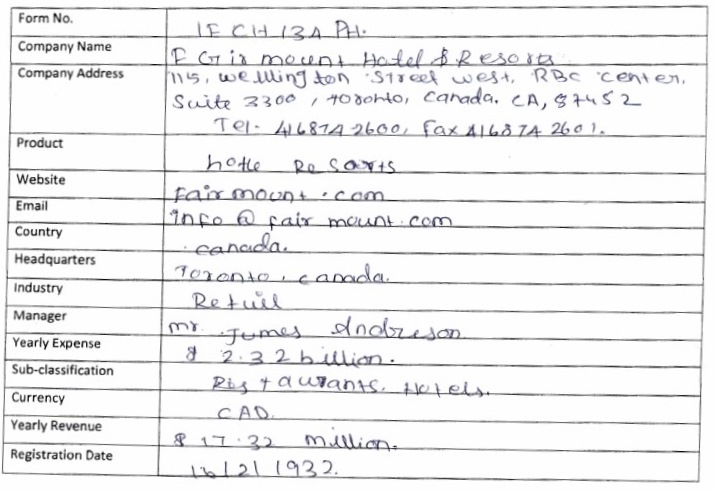 Form No. 1F CH 13A PH.
Company Name F G ir mount Hotel & Resorts
Company Address 115, wellington Street west, RBC center,
Suite 3300, toronto, Canada. CA, 87452
Tel- 416874-2600, Fax 416874 2601.
Product hotle Resorts
Website Fairmount.com
Email info@fairmount.com
Country canada.
Headquarters Toronto, canada.
Industry Retail
Manager mr. James Andreson
Yearly Expense $ 2.32 billion.
Sub-classification Restaurants. Hotels.
Currency CAD.
Yearly Revenue $ 17.32 million.
Registration Date 16/2/1932.